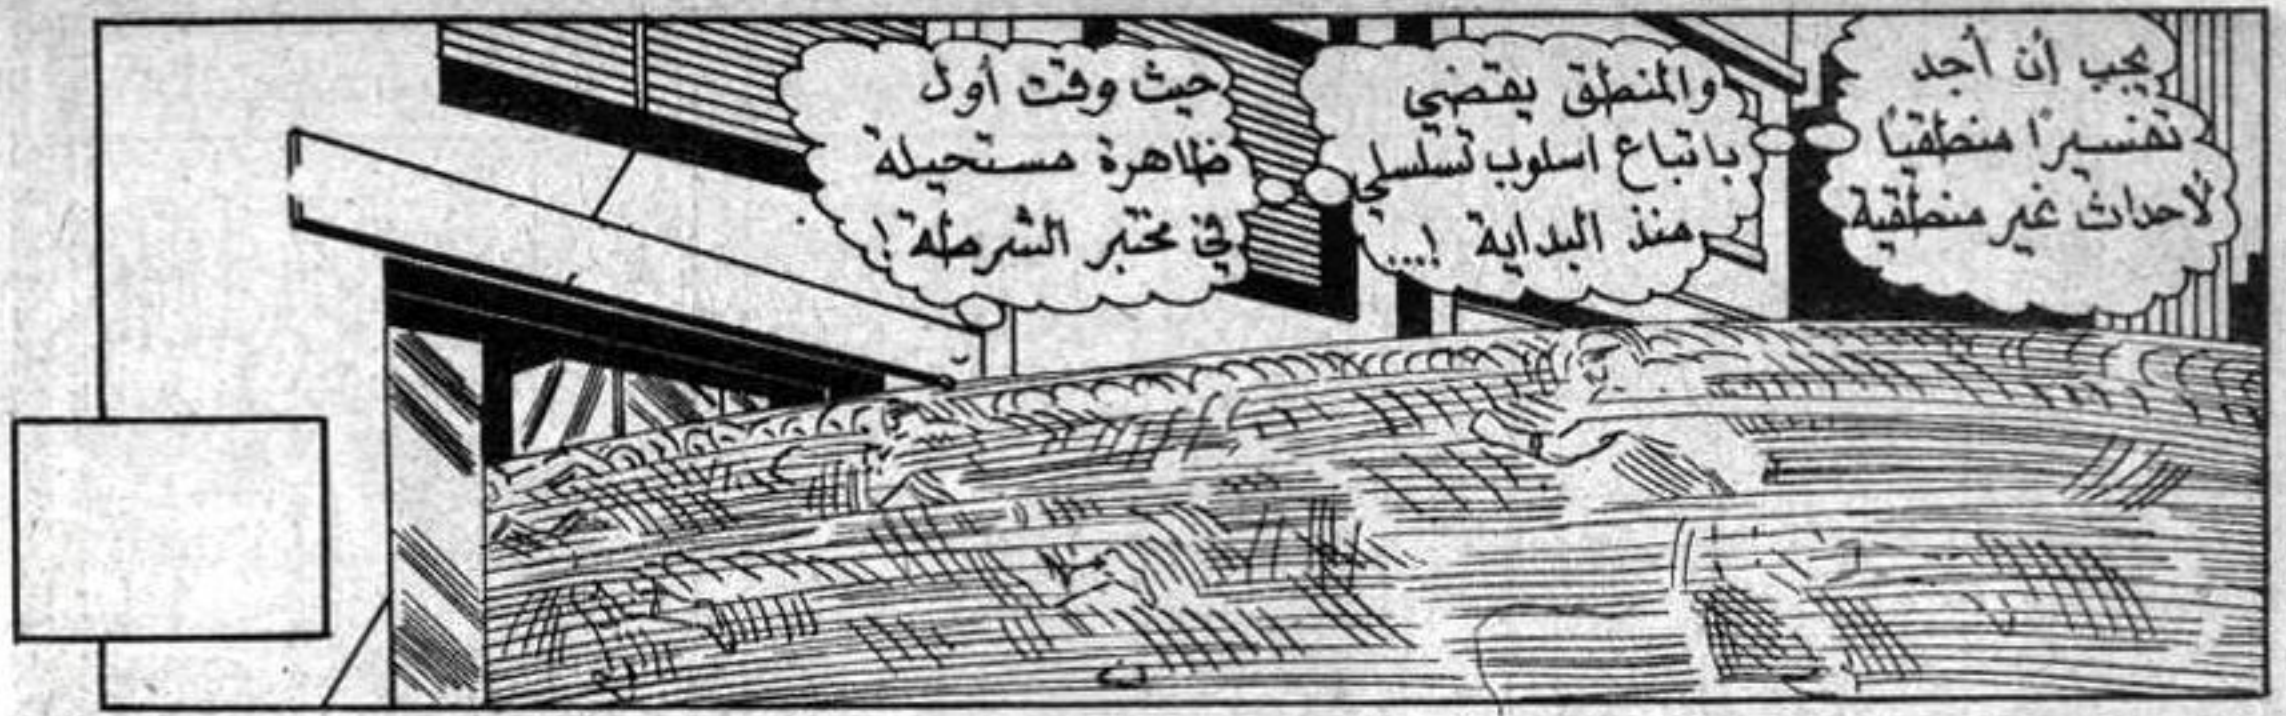 يجب أن أجد
تفسيرًا منطقيًا
لأحداث غير منطقية
والمنطق يقتضي
باتباع اسلوب تسلسلي
منذ البداية !...
حيث وقت أول
ظاهرة مستحيلة
في مختبر الشرطة !